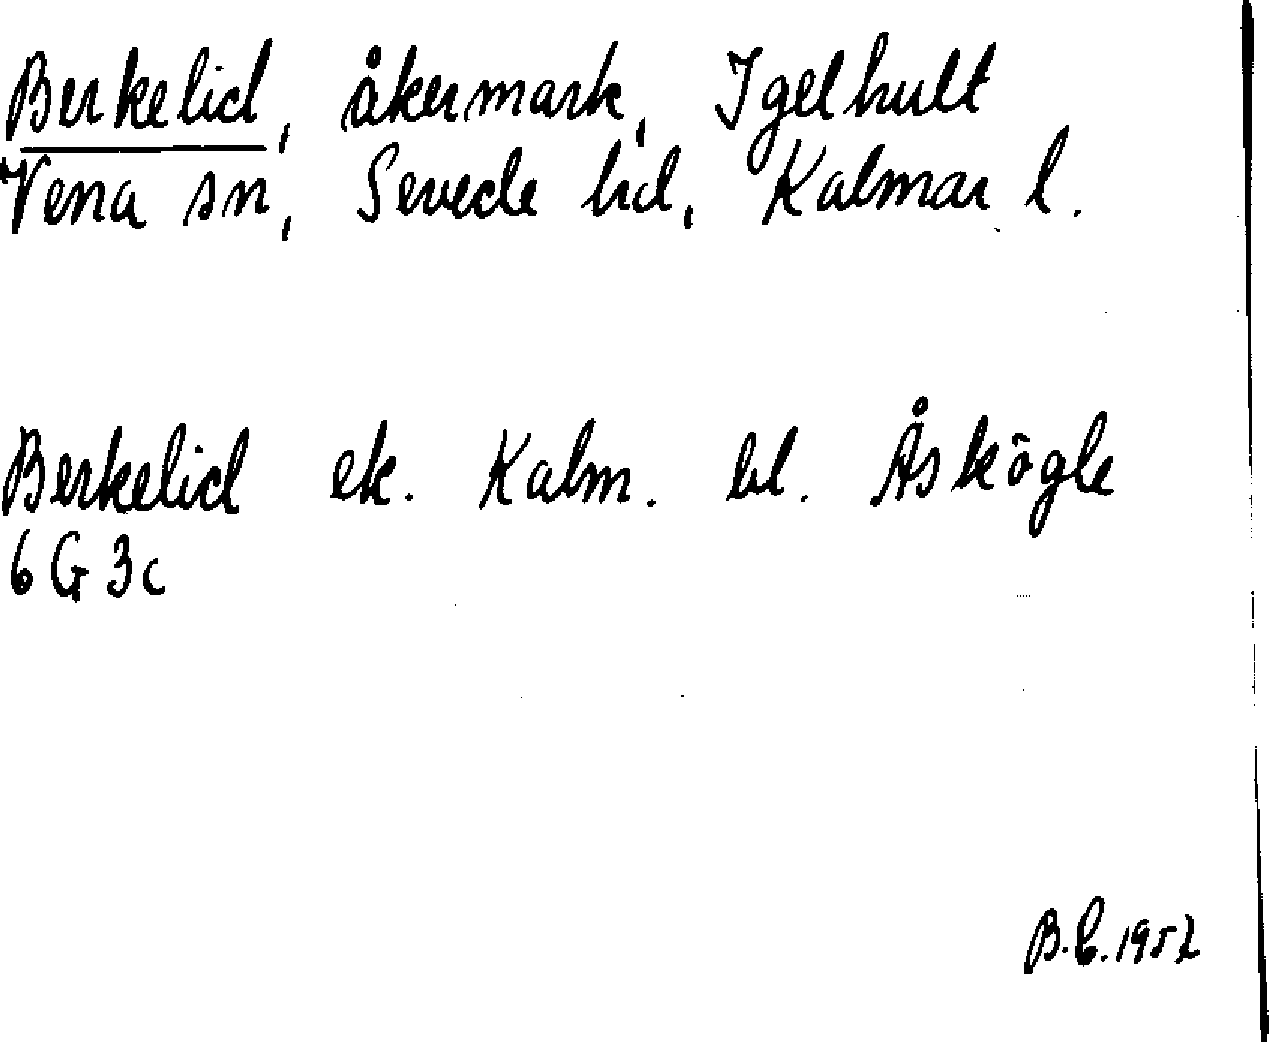 Berkelid, åkermark, Igelhult
Vena sn, Sevede hd, Kalmar l.
Berkelid ek. Kalm. bl. Åskögle
6G3c
B.E. 1952